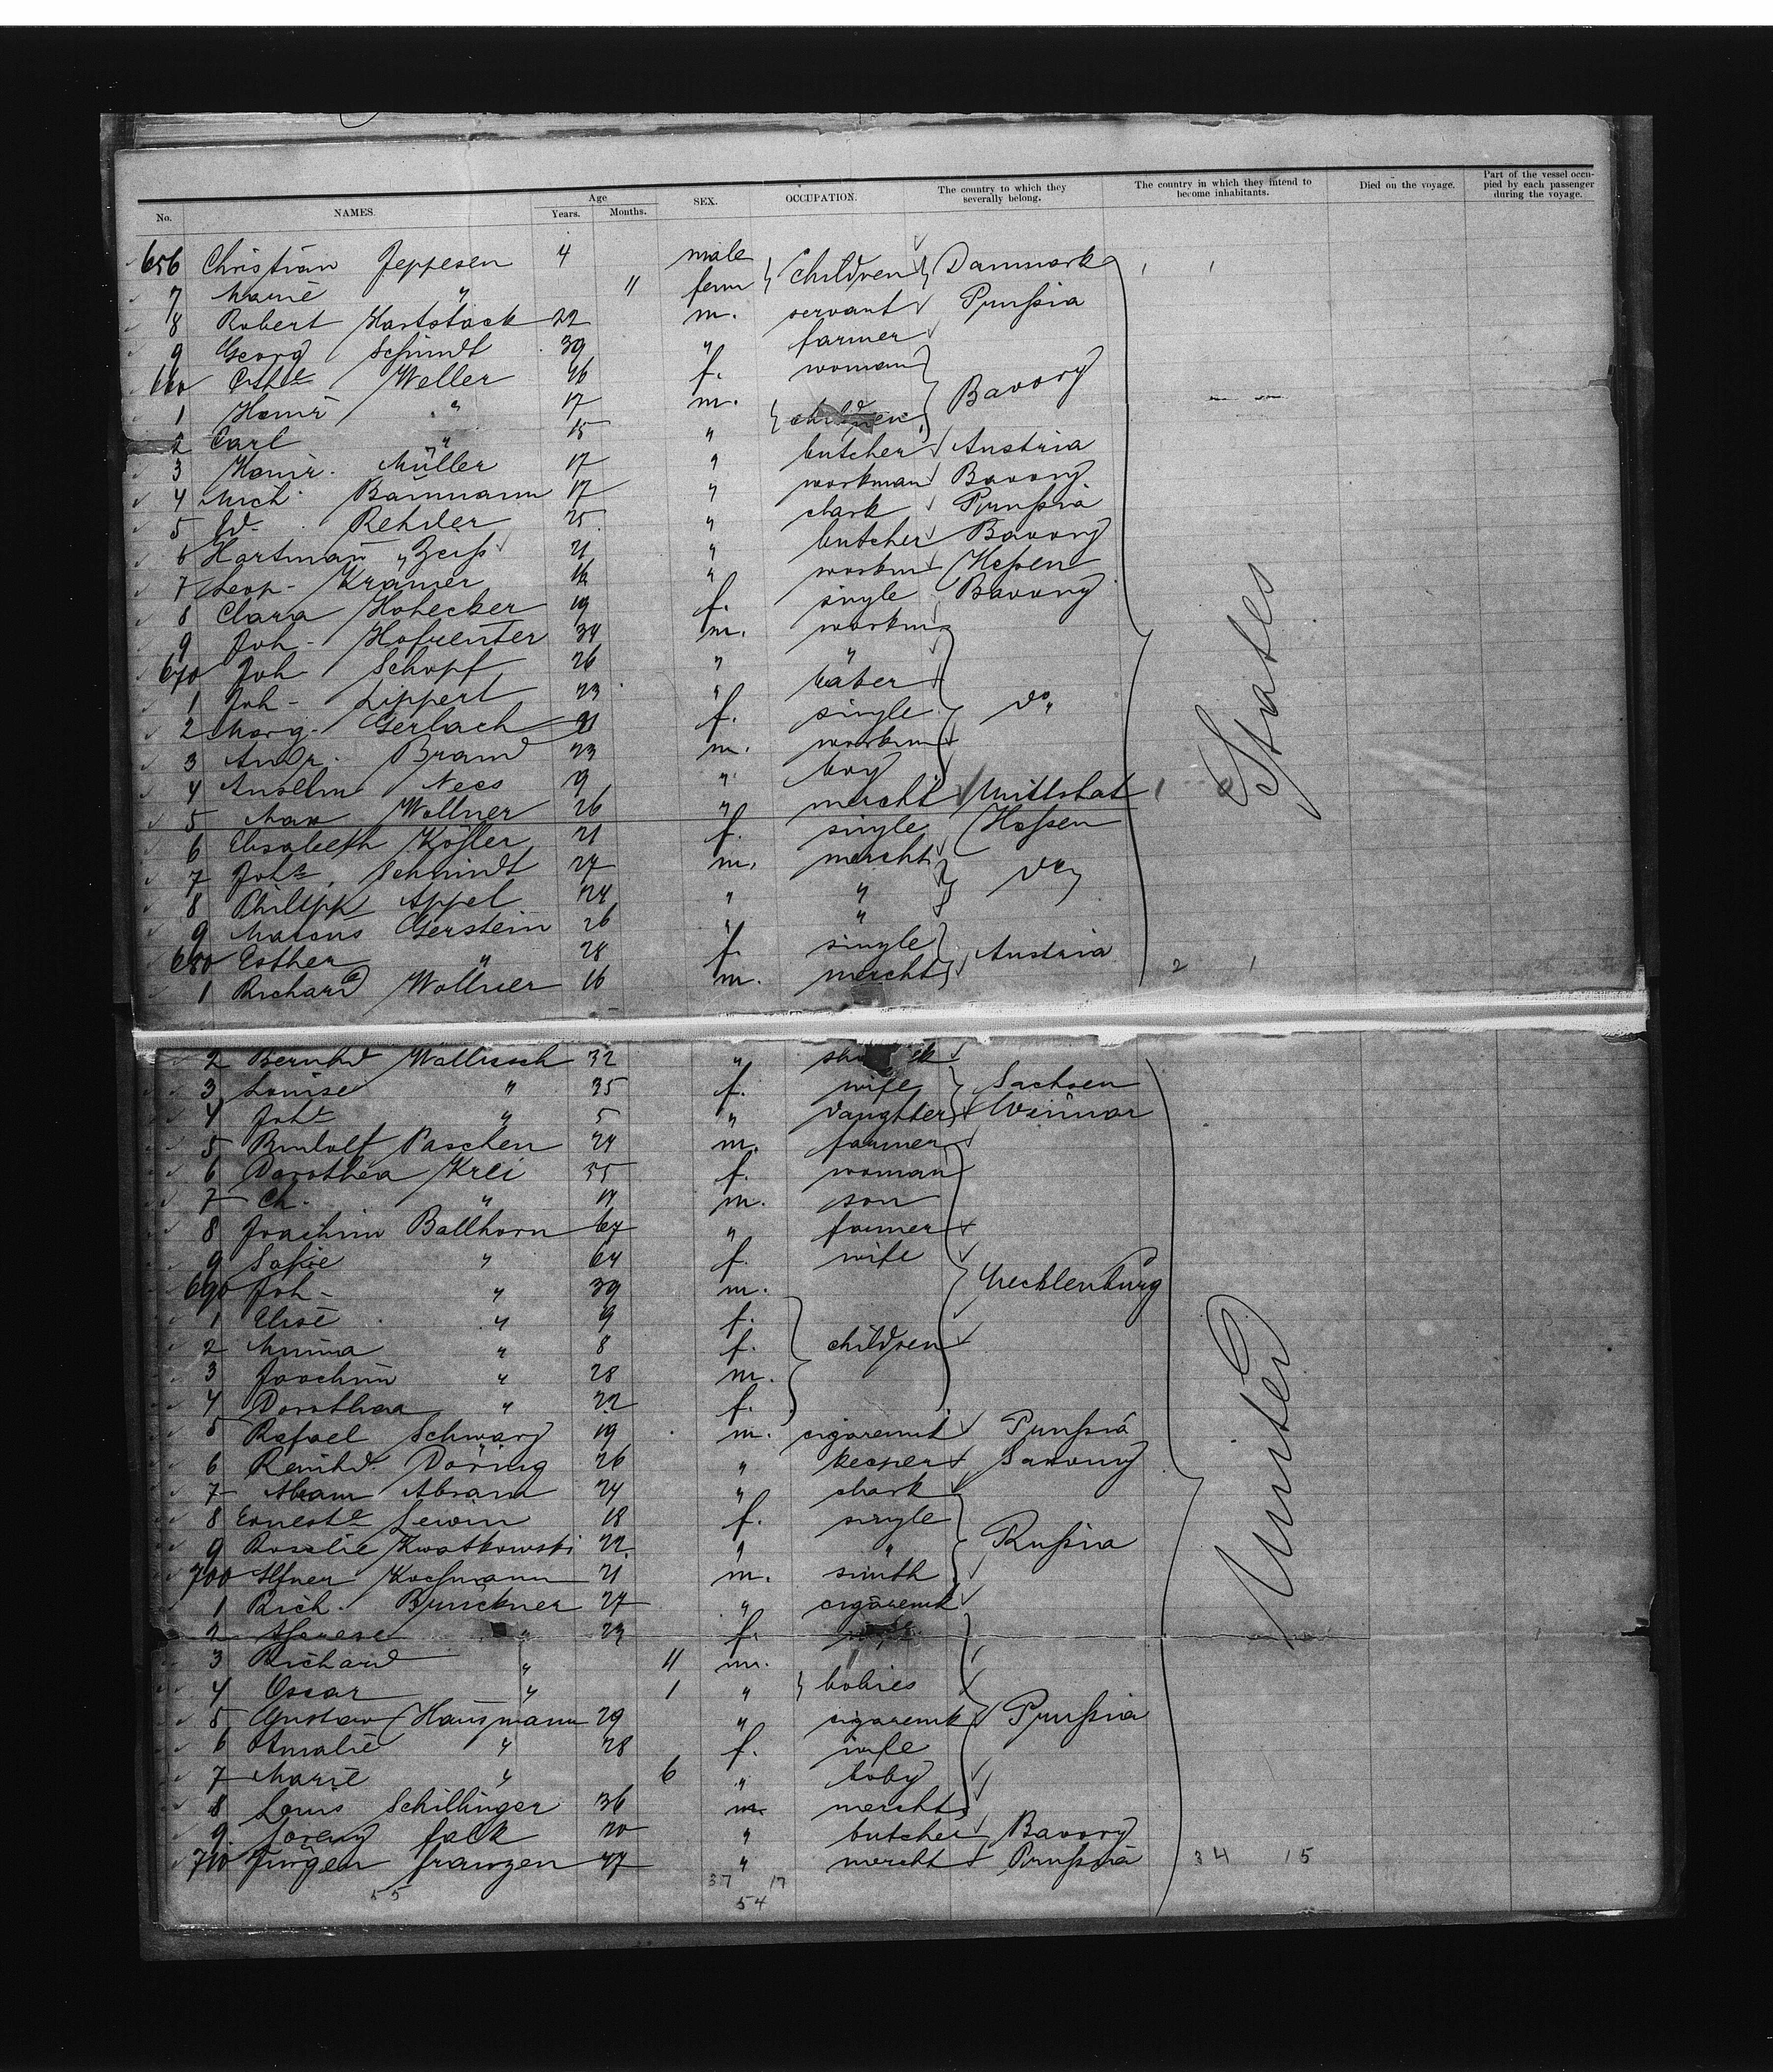 No. NAMES. Age Years. Months. SEX. OCCUPATION. The country to which they severally belong. The country in which they intend to become inhabitants. Died on the voyage. Part of the vessel occupied by each passenger during the voyage.
656 Christian Jeppesen 4 male } children } Danmark
7 Marie " 11 fem
8 Robert Hartstock 22 m. servant Prußia
9 Georg Schmidt 39 " farmer
660 Weller 46 f. woman } Bavory
1 Heinr " 17 m. } children
2 Carl " 15 "
3 Heinr. Müller 17 " butcher Austria
4 Mich. Baumann 17 " workman Bavory
5 Ed. Rehder 25 " clark Prußia
6 Hartman Zeiß 21 " butcher Bavory
7 Leop. Krämer 16 " workm Heßen
8 Clara Hohecker 19 f. single Bavory
9 Joh. 34 m. workm
670 Joh Schopf 26 " "
1 Joh. Lippert 23 "
2 Marg. Gerlach 21 f. single do
3 Andr. Brand 23 m. workm
4 Anselm Nees 9 " boy
5 Max Wollner 26 " mercht Unitstat
6 Elisabeth Kößler 21 f. single Heßen
7 Schmidt 27 m. mercht } do
8 Philipp Appel 24 " "
9 Marcus Gerstein 26 " "
680 Esther " 28 f. single } Austria
1 Richard Wollner 16 m. mercht 2 1
2 Bernhd Wallisch 32 "
3 Louise " 35 f. wife } Sachsen
4 " 5 " daughter Weimar
5 Rudolf Paschen 24 m. farmer
6 Dorothea Krei 55 f. woman
7 Ch. " 19 m. son
8 Joachim Ballhorn 67 " farmer
9 Sofie " 64 f. wife
690 Joh. " 39 m. Mecklenburg
1 Elise " 9 f.
2 Minna " 8 f. } children
3 Joachim " 28 m.
4 Dorothea " 22 f.
5 Rafael Schwarz 19 m. cigaremk Prußia
6 Reinhd. Döring 26 " keeper Saxony
7 Abram Abram 24 " clark
8 Erneste Lewin 18 f. single } Rußia
9 Rosalie Kwatkowski 22 " "
700 21 m. smith
1 Rich. Brückner 27 " cigaremk
2 " 23 f.
3 Richard " 11 m.
4 Oscar " 1 " } babies
5 Gustav Hausmann 29 " cigaremk Prußia
6 Amalie " 28 f. wife
7 Marie " 6 " baby
8 Louis Schillinger 36 m. mercht
9 Lorenz Falk 20 " butcher Bavory
710 Jürgen Franzen 47 " mercht Prußia 34 15
55 37 17
54
United States